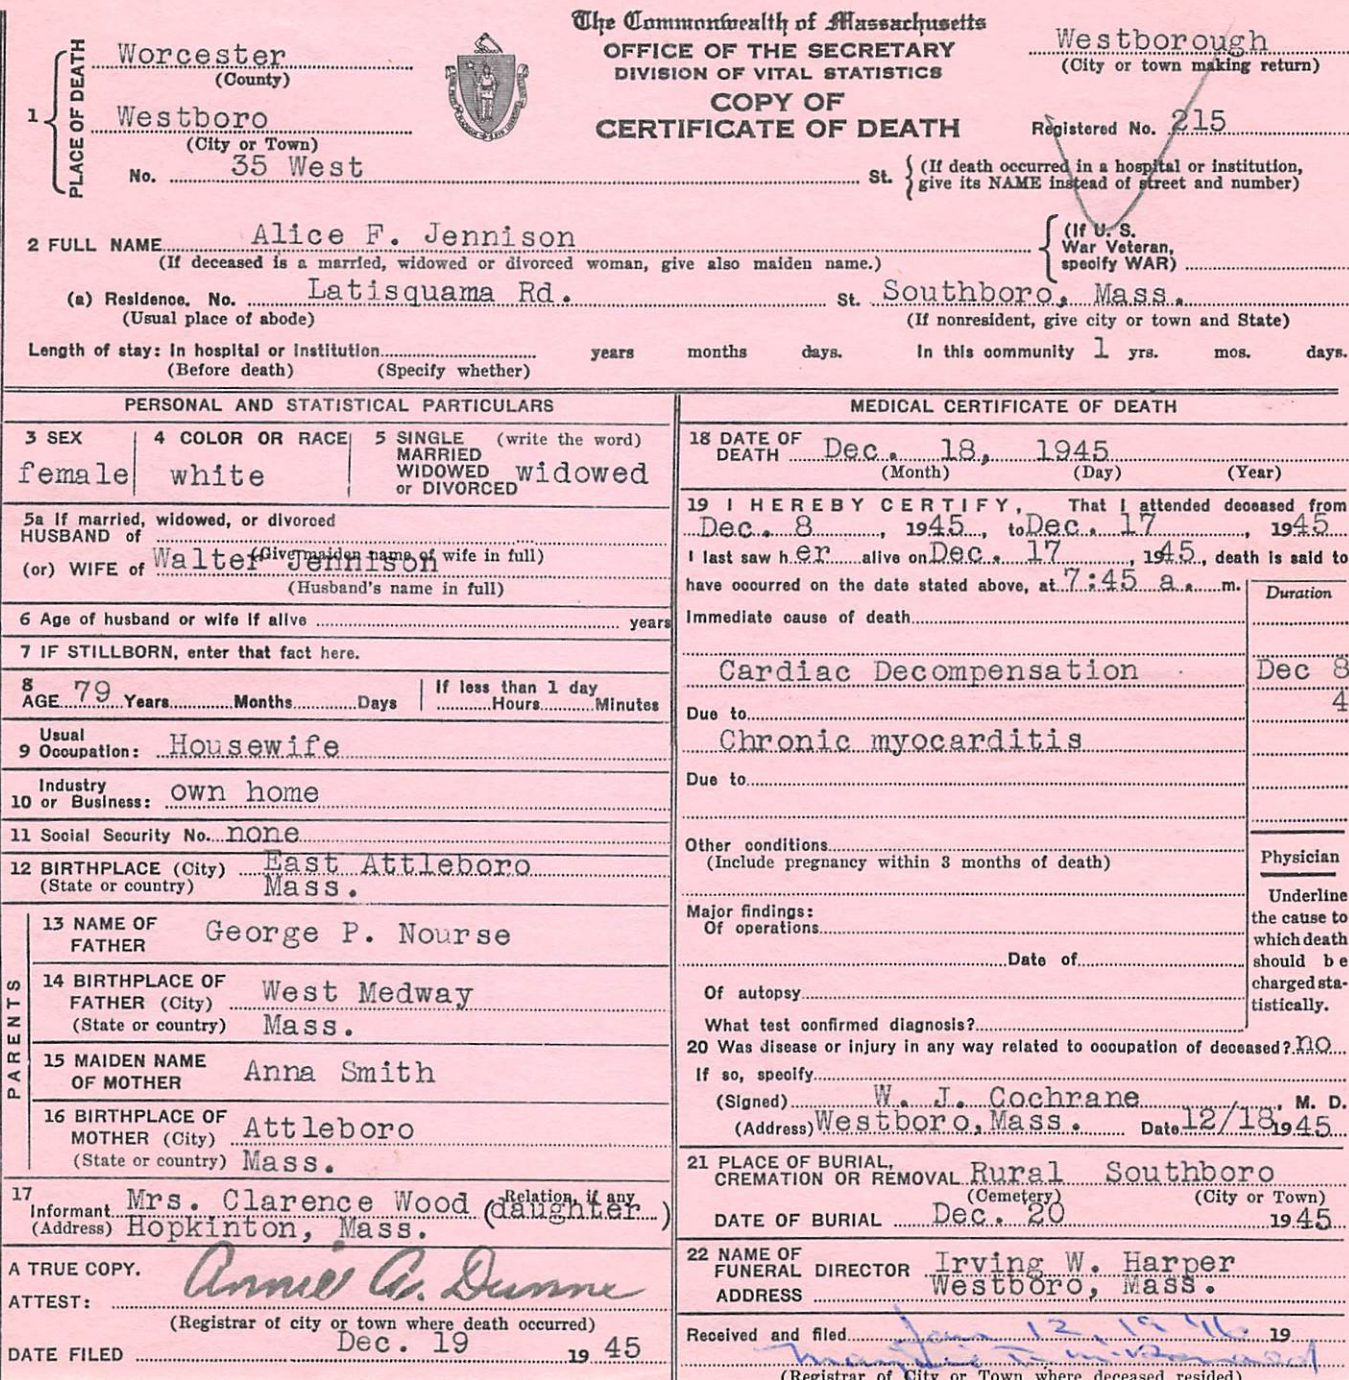 The Commonwealth of Massachusetts
OFFICE OF THE SECRETARY
DIVISION OF VITAL STATISTICS
COPY OF
CERTIFICATE OF DEATH
Westborough
(City or town making return)
Registered No. 215
1 PLACE OF DEATH
Worcester
(County)
Westboro
(City or Town)
No. 35 West St. (If death occurred in a hospital or institution, give its NAME instead of street and number)
2 FULL NAME Alice F. Jennison
(If deceased is a married, widowed or divorced woman, give also maiden name.)
(If U. S. War Veteran, specify WAR)
(a) Residence. No. Latisquama Rd. St. Southboro, Mass.
(Usual place of abode) (If nonresident, give city or town and State)
Length of stay: In hospital or institution years months days. In this community 1 yrs. mos. days.
(Before death) (Specify whether)
PERSONAL AND STATISTICAL PARTICULARS
3 SEX
female
4 COLOR OR RACE
white
5 SINGLE MARRIED WIDOWED or DIVORCED (write the word)
widowed
5a If married, widowed, or divorced
HUSBAND of
(Give maiden name of wife in full)
(or) WIFE of Walter Jennison
(Husband's name in full)
6 Age of husband or wife if alive years
7 IF STILLBORN, enter that fact here.
8 AGE 79 Years Months Days If less than 1 day Hours Minutes
9 Usual Occupation: Housewife
10 Industry or Business: own home
11 Social Security No. none
12 BIRTHPLACE (City) East Attleboro
(State or country) Mass.
PARENTS
13 NAME OF FATHER George P. Nourse
14 BIRTHPLACE OF FATHER (City) West Medway
(State or country) Mass.
15 MAIDEN NAME OF MOTHER Anna Smith
16 BIRTHPLACE OF MOTHER (City) Attleboro
(State or country) Mass.
17 Informant Mrs. Clarence Wood (Relation, if any daughter)
(Address) Hopkinton, Mass.
A TRUE COPY.
ATTEST: Annie A. Dunne
(Registrar of city or town where death occurred)
DATE FILED Dec. 19 1945
MEDICAL CERTIFICATE OF DEATH
18 DATE OF DEATH Dec. 18, 1945
(Month) (Day) (Year)
19 I HEREBY CERTIFY, That I attended deceased from
Dec. 8, 1945, to Dec. 17, 1945
I last saw her alive on Dec. 17, 1945, death is said to
have occurred on the date stated above, at 7:45 a. m.
Duration
Immediate cause of death
Cardiac Decompensation Dec 8
4
Due to
Chronic myocarditis
Due to
Other conditions
(Include pregnancy within 3 months of death)
Major findings:
Of operations
Date of
Of autopsy
What test confirmed diagnosis?
Physician
Underline
the cause to
which death
should be
charged sta-
tistically.
20 Was disease or injury in any way related to occupation of deceased? no
If so, specify
(Signed) W. J. Cochrane, M. D.
(Address) Westboro, Mass. Date 12/18 1945
21 PLACE OF BURIAL, CREMATION OR REMOVAL Rural Southboro
(Cemetery) (City or Town)
DATE OF BURIAL Dec. 20 1945
22 NAME OF FUNERAL DIRECTOR Irving W. Harper
ADDRESS Westboro, Mass.
Received and filed Jan 12, 1946 19
(Registrar of City or Town where deceased resided)